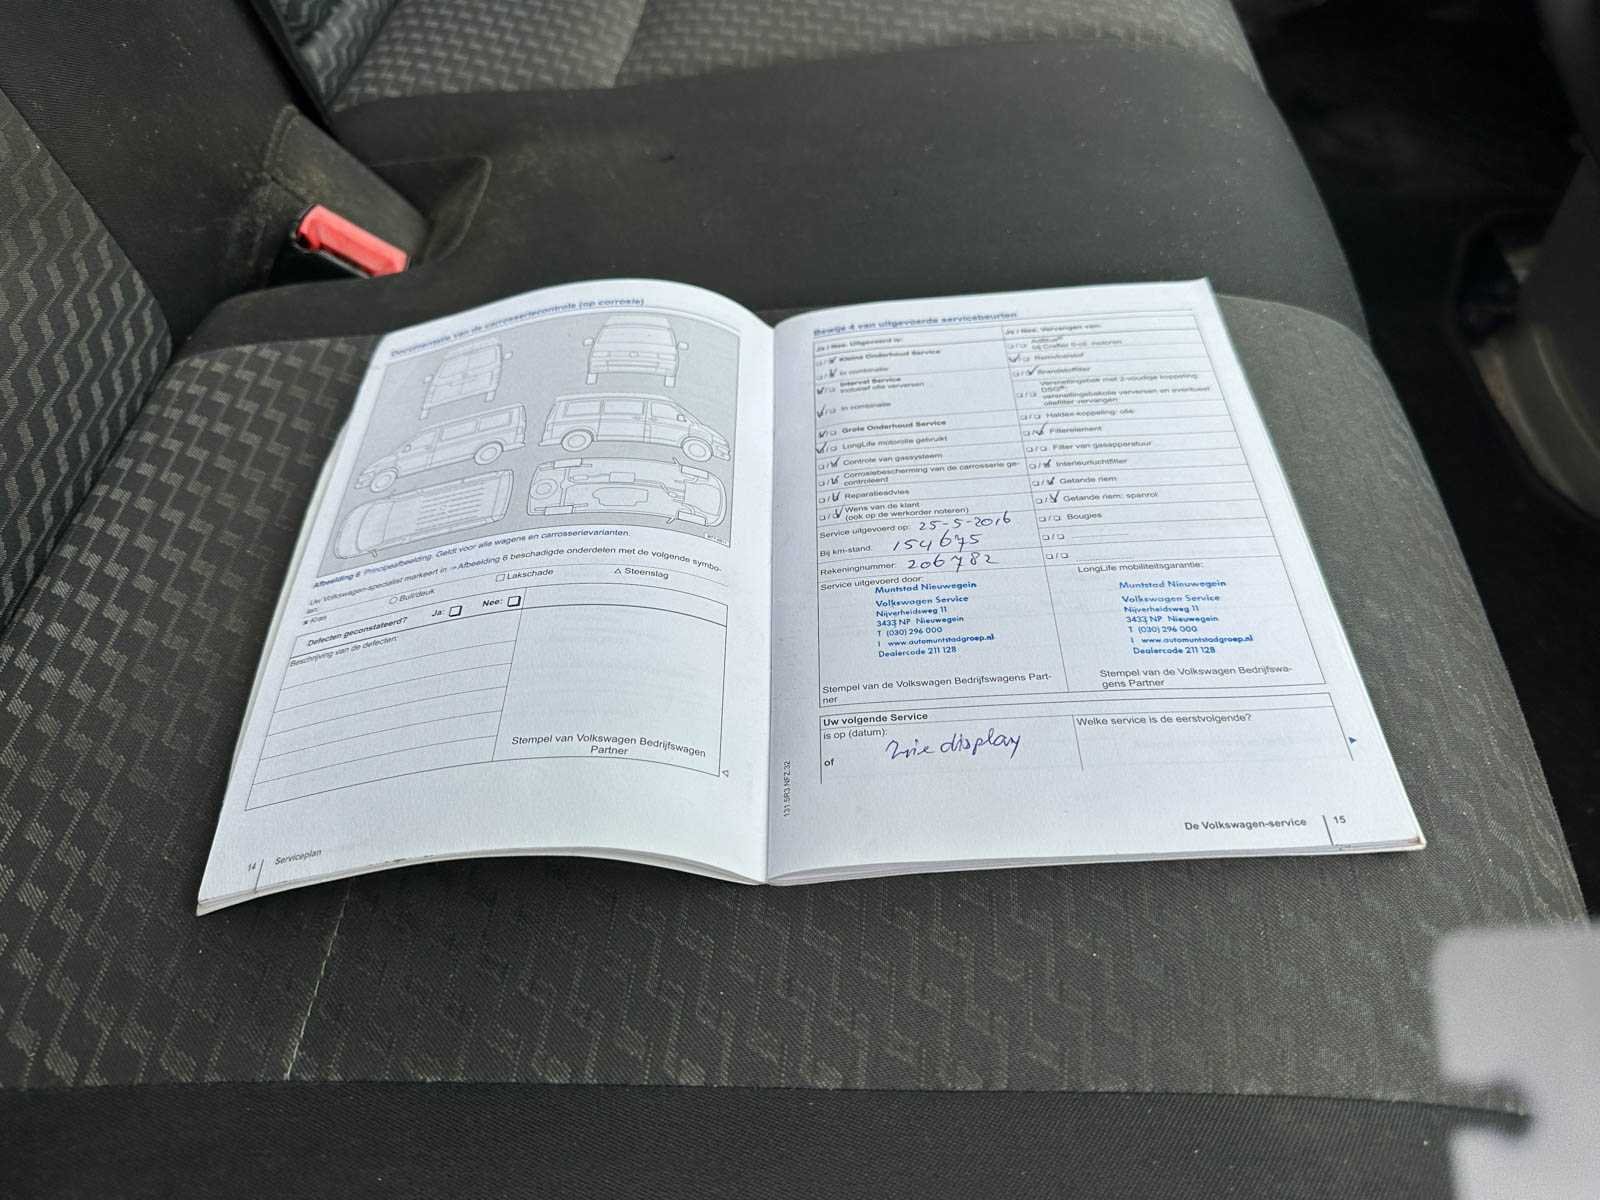 Documentatie van de carrosseriecontrole (op corrosie)
Afbeelding 6 Principeafbeelding. Geldt voor alle wagens en carrosserievarianten.
Uw Volkswagen-specialist markeert in → Afbeelding 6 beschadigde onderdelen met de volgende symbo-
len:
Kras
Buil/deuk
Lakschade
△ Steenslag
Defecten geconstateerd? Ja: Nee:
Beschrijving van de defecten:
Stempel van Volkswagen Bedrijfswagen
Partner
14 Serviceplan
Bewijs 4 van uitgevoerde servicebeurten
Ja / Nee: Uitgevoerd is:
Kleine Onderhoud Service
In combinatie
Interval Service
inclusief olie verversen
In combinatie
Grote Onderhoud Service
LongLife motorolie gebruikt
Controle van gassysteem
Corrosiebescherming van de carrosserie ge-
controleerd
Reparatieadvies
Wens van de klant
(ook op de werkorder noteren)
Service uitgevoerd op: 25-5-2016
Bij km-stand: 154675
Rekeningnummer: 206782
Service uitgevoerd door:
Muntstad Nieuwegein
Volkswagen Service
Nijverheidsweg 11
3433 NP Nieuwegein
T (030) 296 000
I www.automuntstadgroep.nl
Dealercode 211 128
Stempel van de Volkswagen Bedrijfswagens Part-
ner
Ja / Nee: Vervangen van:
AdBlue®
bij Crafter 5-cil. motoren
Remvloeistof
Brandstoffilter
Versnellingsbak met 2-voudige koppeling,
DSG®:
versnellingsbakolie verversen en eventueel
oliefilter vervangen
Haldex-koppeling: olie
Filterelement
Filter van gasapparatuur
Interieurluchtfilter
Getande riem
Getande riem: spanrol
Bougies
LongLife mobiliteitsgarantie:
Muntstad Nieuwegein
Volkswagen Service
Nijverheidsweg 11
3433 NP Nieuwegein
T (030) 296 000
I www.automuntstadgroep.nl
Dealercode 211 128
Stempel van de Volkswagen Bedrijfswa-
gens Partner
Uw volgende Service
is op (datum):
zie display
of
Welke service is de eerstvolgende?
131.5R3.NFZ.32
De Volkswagen-service 15